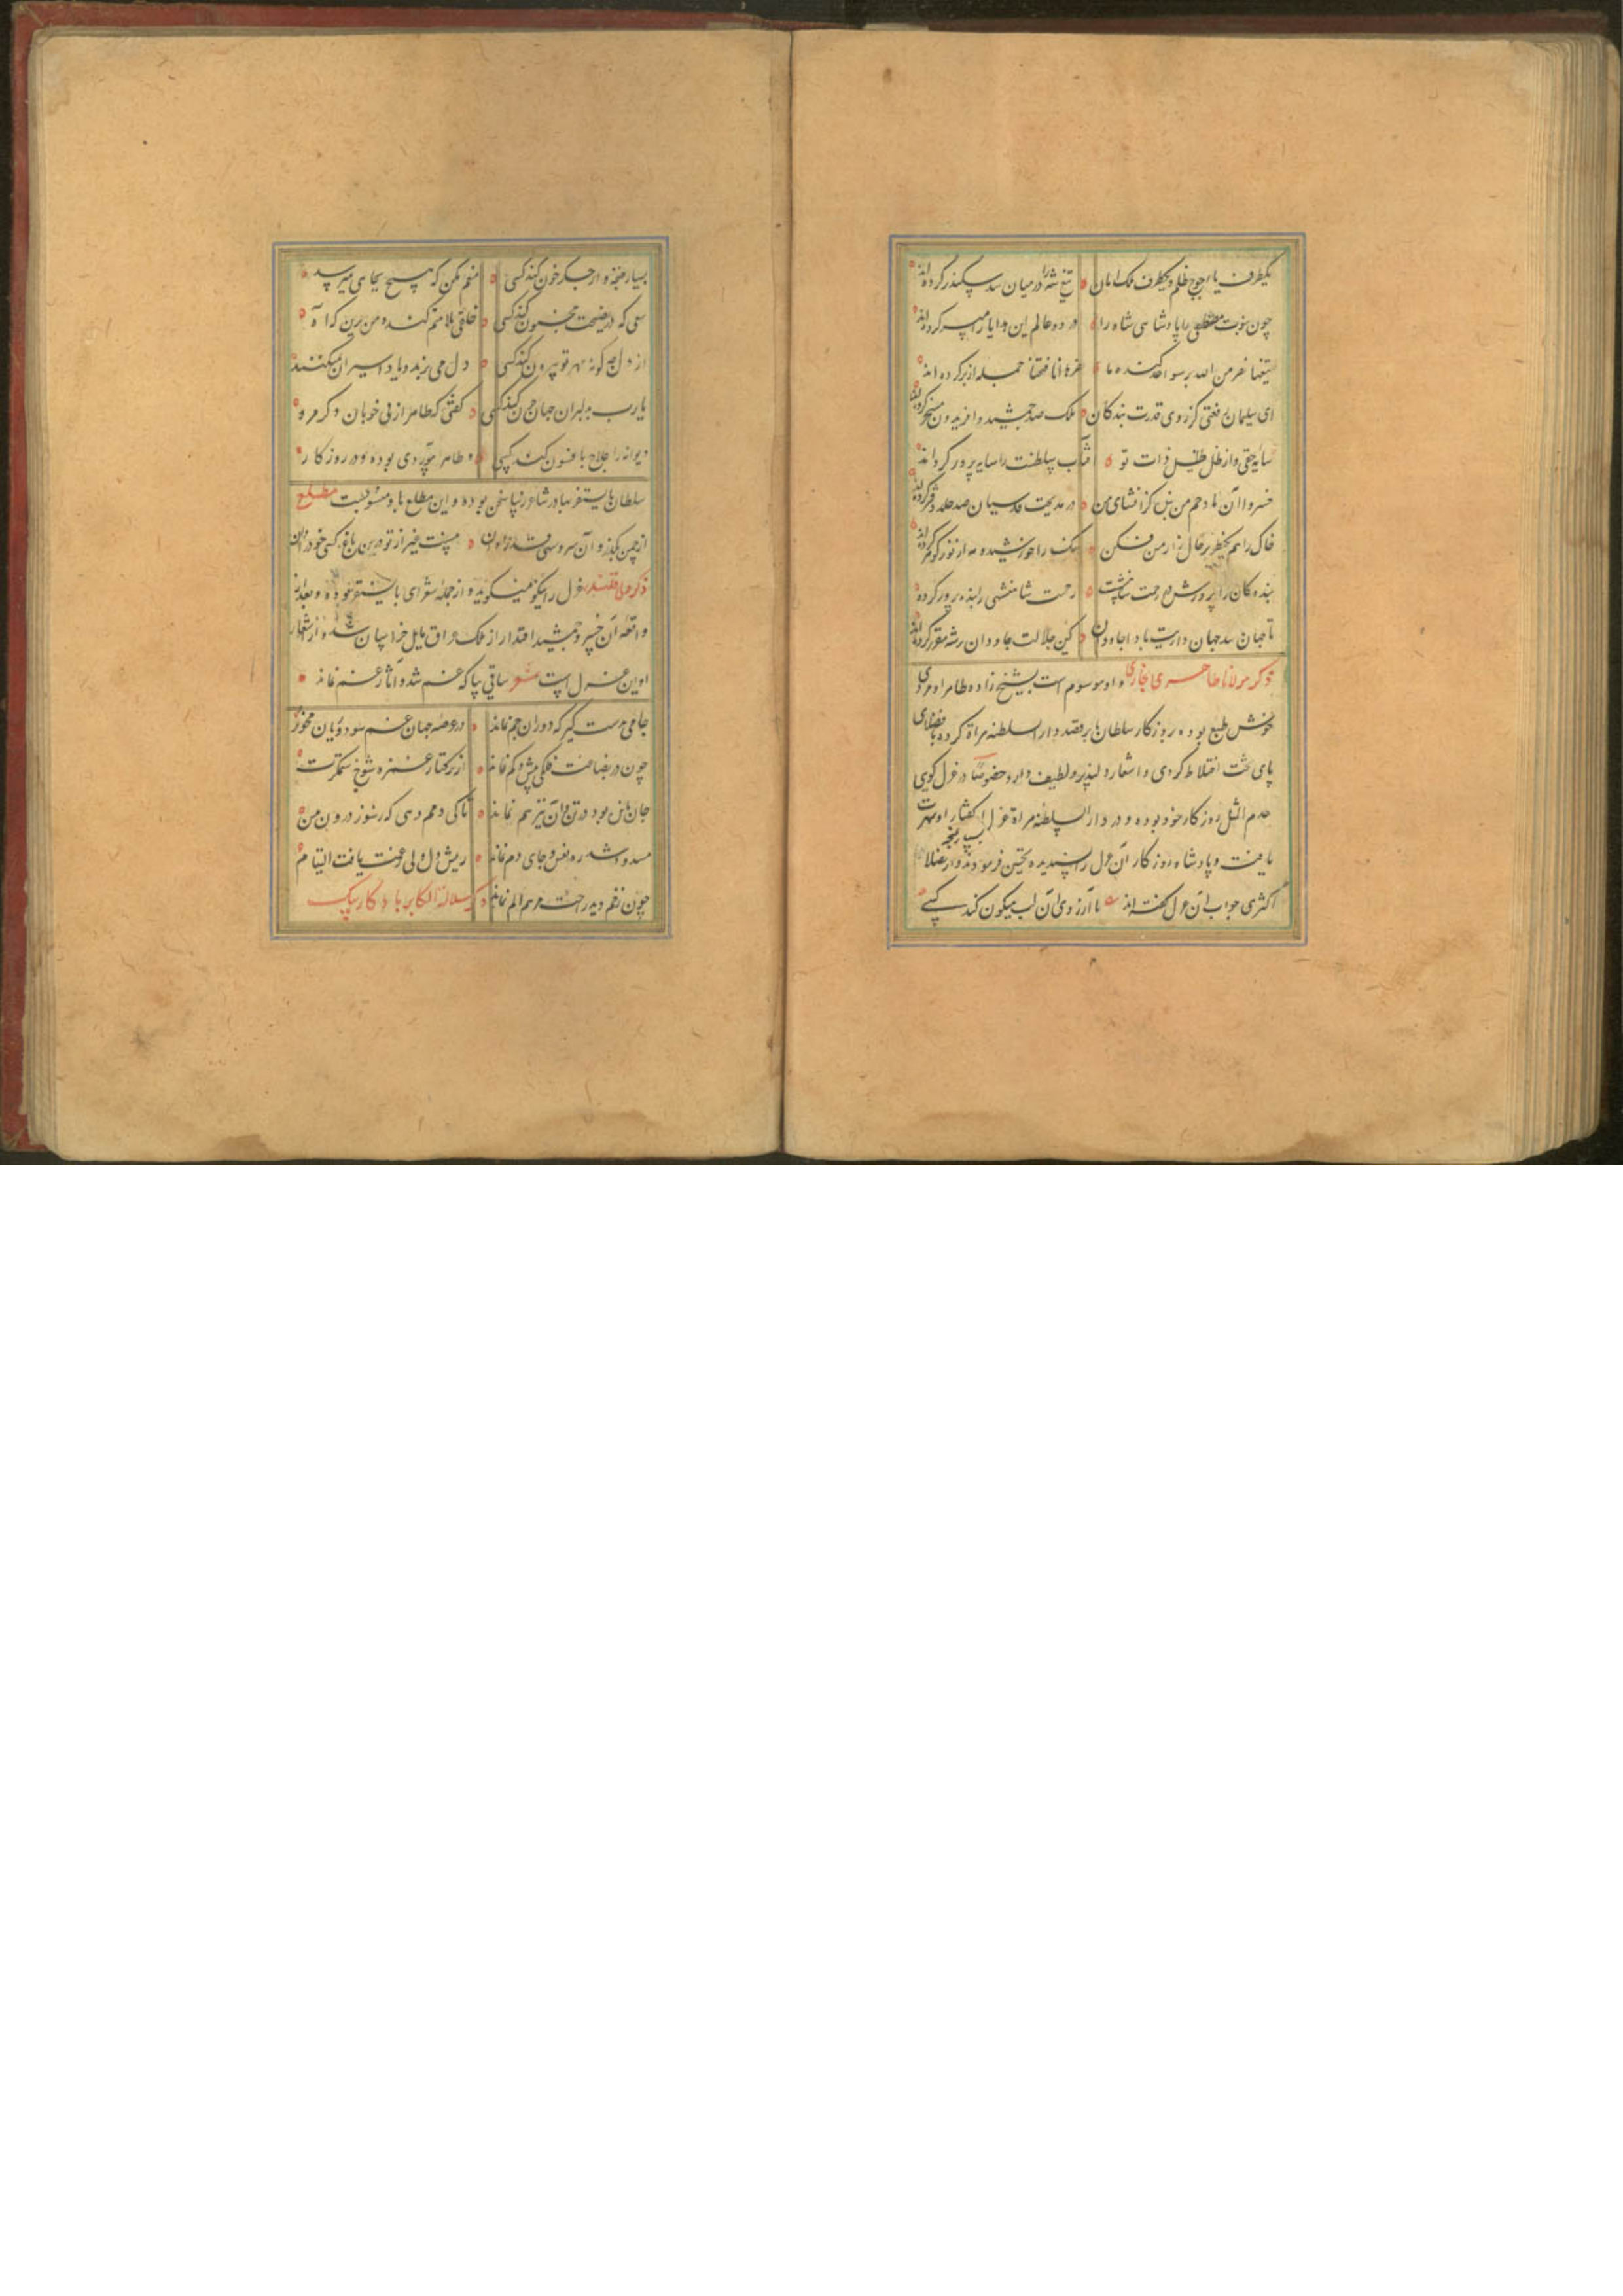 یکطرف یاجوج ظلم و یکطرف ملک امان تیغ شه را در میان سد سکندر کرده اند
چون بنوبت پادشاهی شاه را در دو عالم این میسر کرده اند
تیغها نصر من الله فتحنا جمله ازبر کرده اند
ای سلیمان رفعتی کز روی قدرت بندکان ملک صد جمشید و افریدون مسخر کرده اند
سایه حقی و از ظل طفیل ذات تو آفتاب سلطنت را سایه پرور کرده اند
خسروا آن مادحم من بنده کز انشای من در مدیحت قدسیان صد جلد دفتر کرده اند
خاک راهم یکنظر بر حال زار من فکن سنک را خورشید و مه از نور کوهر کرده اند
بنده کان را پرورش ده رحمت شاهنشهی را بنده پرور کرده
تا جهان باشد جهان داریت بادا جاودان کین جلالت جاودان بر شه مقرر کرده اند
ذکر مولانا طاهری بخاری و او موسوم است بشیخ زاده طاهر او مردی
خوش طبع بوده بروزکار سلطان بابر قصد دار السلطنه هراة کرده با فضلای
پای تخت اختلاط کردی و اشعار دلپذیر و لطیف دارد خصوصا در غزل کوی
عدیم المثل روزکار خود بوده و در دار السلطنه هراة غزل از کفتار او شهرت
یافت و پادشاه روزکار آن غزل را پسندیده تحسین فرمودند و از فضلا
اکثری جواب آن غزل کفته اند با آرزوی آن لب میکون کند کسی
بسیار غنچه وار جکر خون کند کسی منعم مکن که هیچ بجایی نمیرسد
سعی که در نصیحت مجنون کند کسی خلقی ملامتم کند و من برین که آه
از دل چکونه مهر تو بیرون کند کسی دل می برند و یاد اسیران نمیکنند
یا رب بدلبران جهان چون کند کسی کفتی که طاهر از پی خوبان دکر مرو
دیوانه را علاج بافسون کند کسی و طاهر ابیوردی بوده و در روزکار
سلطان بایسنغر بهادر شاعر زیبا سخن بوده و این مطلع بدو منسوبست مطلع
از چمن بکذر و آن سرو سهی قد را بدان نیست غیر از تو درین باغ کسی خود را بدان
ذکر ولی قلندر غزل را نیکو میکوید و از جمله شعرای بایسنغر بوده و بعد از
واقعه آن خسرو جمشید اقتدار از ملک عراق مایل خراسان شد و از اشعار
او این غزل است شعر ساقی بیا که غم شد و آثار غم نماند
جامی بدست کیر که دوران جم نماند در عرصه جهان غم سود و زیان مخور
چون در بضاعت فلکی بیش و کم نماند از ترکتاز غمزه شوخ ستمکرت
جان مانده بود در تن و آن نیز هم نماند تا کی دمم دهی که ز سوز درون من
مسدود شد ره نفس و جای دم نماند ریش دل ولی عاقبت یافت التیام
چون زخم دید راحت مرهم الم نماند ذکر سلالة الاکابر بابا کاربیک